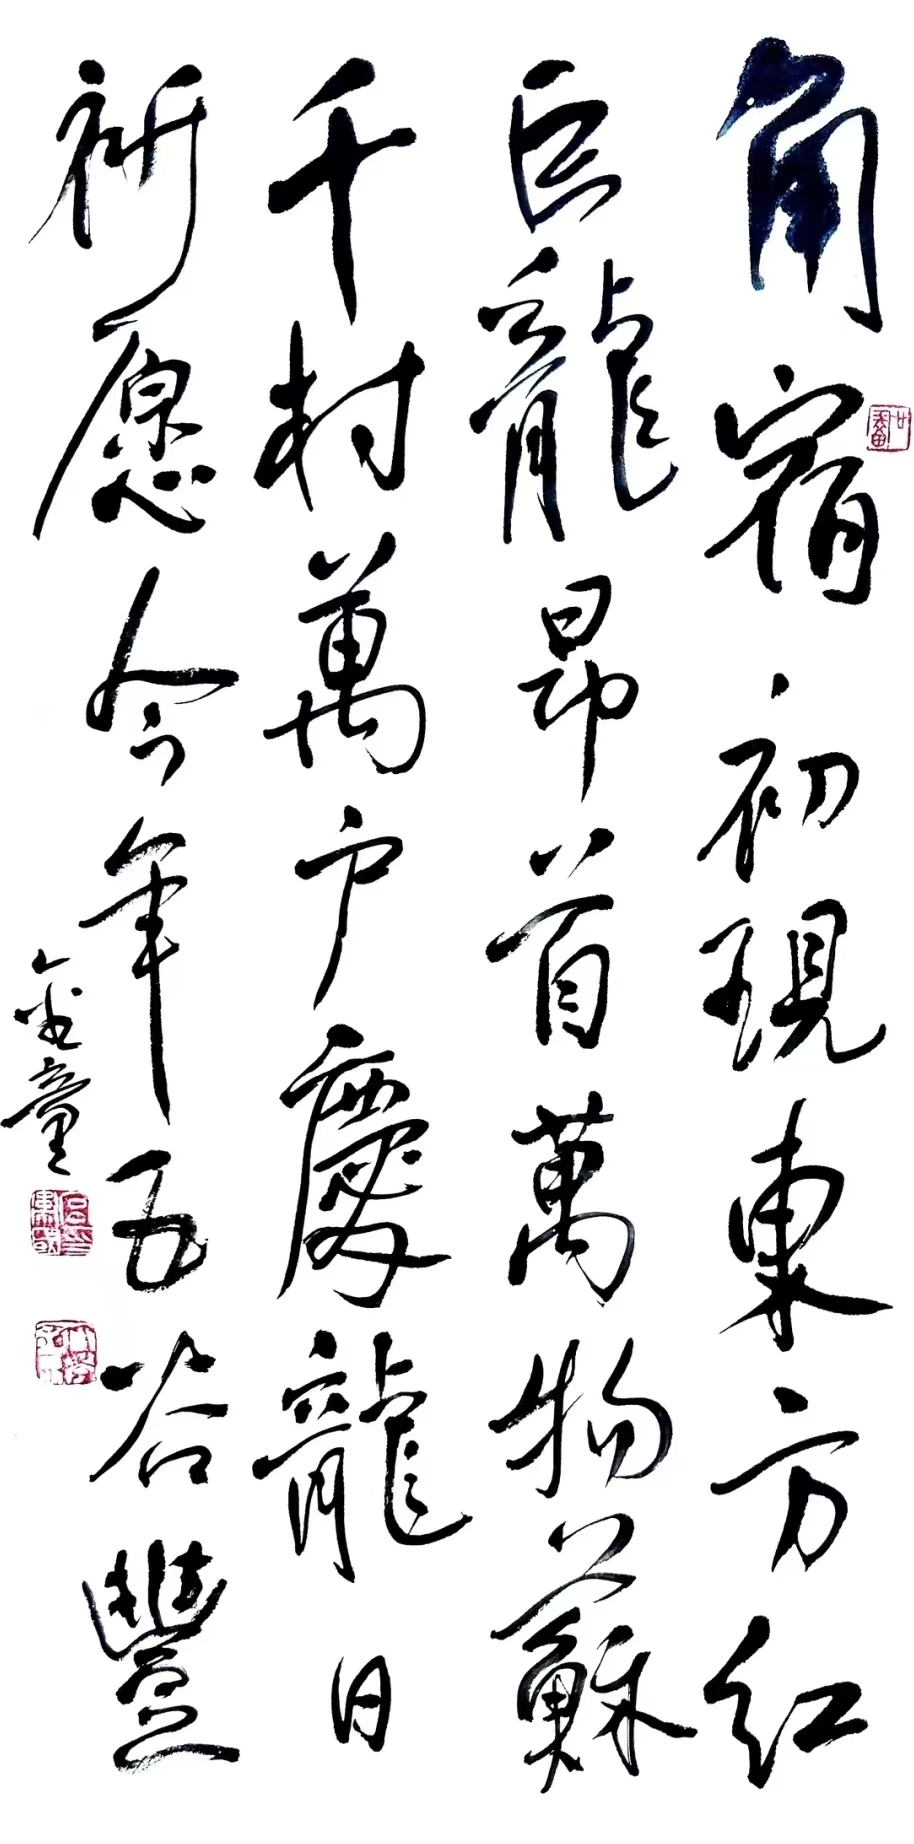 角宿初現東方红
巨龍昂首萬物蘇
千村萬户慶龍日
祈愿今年五谷豐